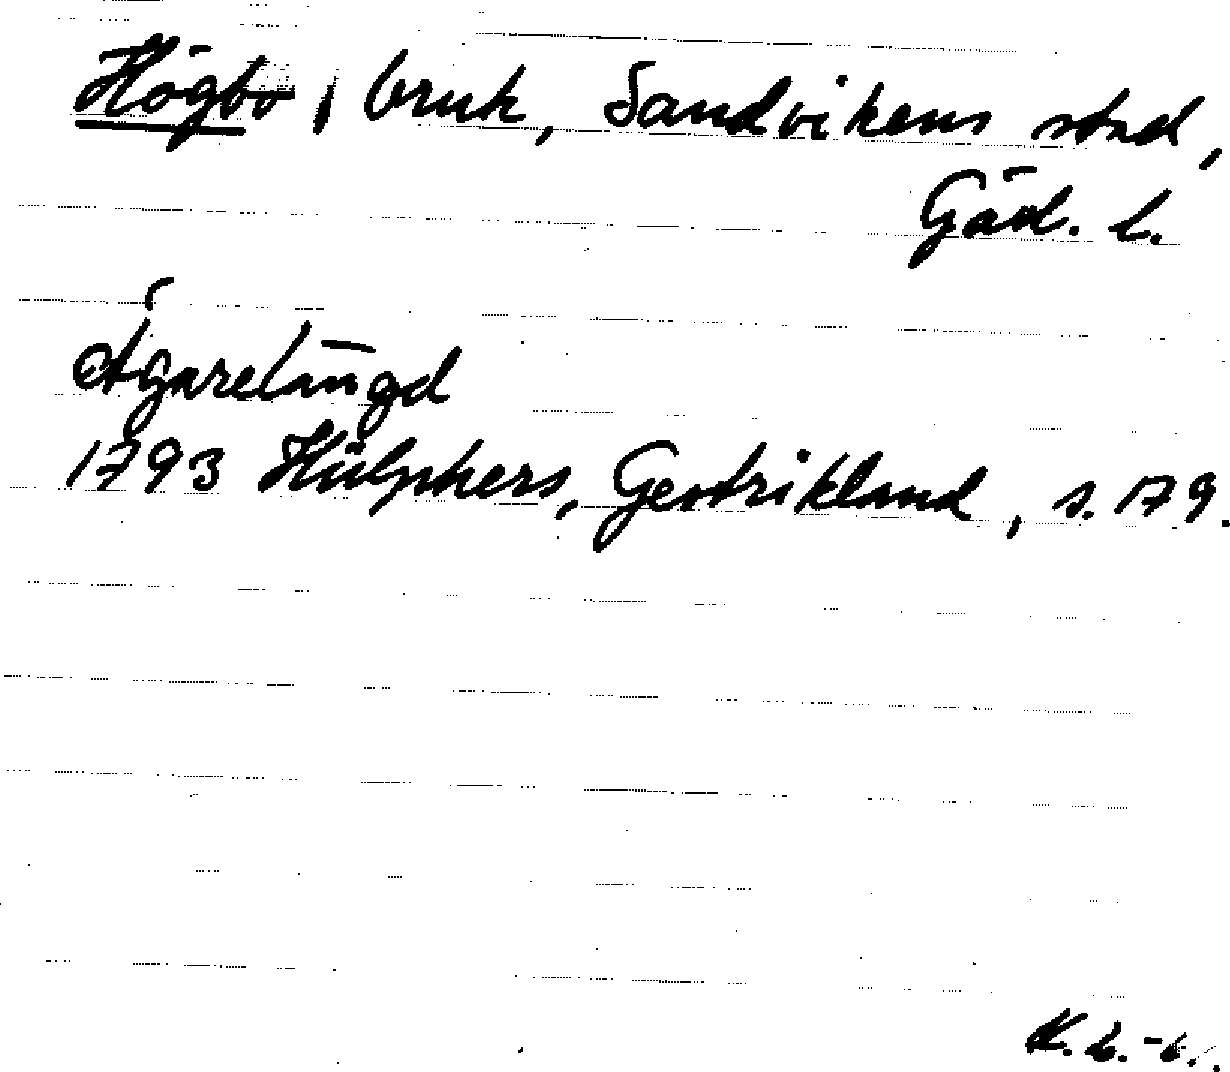 Högbo, bruk, Sandvikens stad,
Gäv. l.
Ägarelängd
1793 Hülphers, Gestrikland, s. 179.